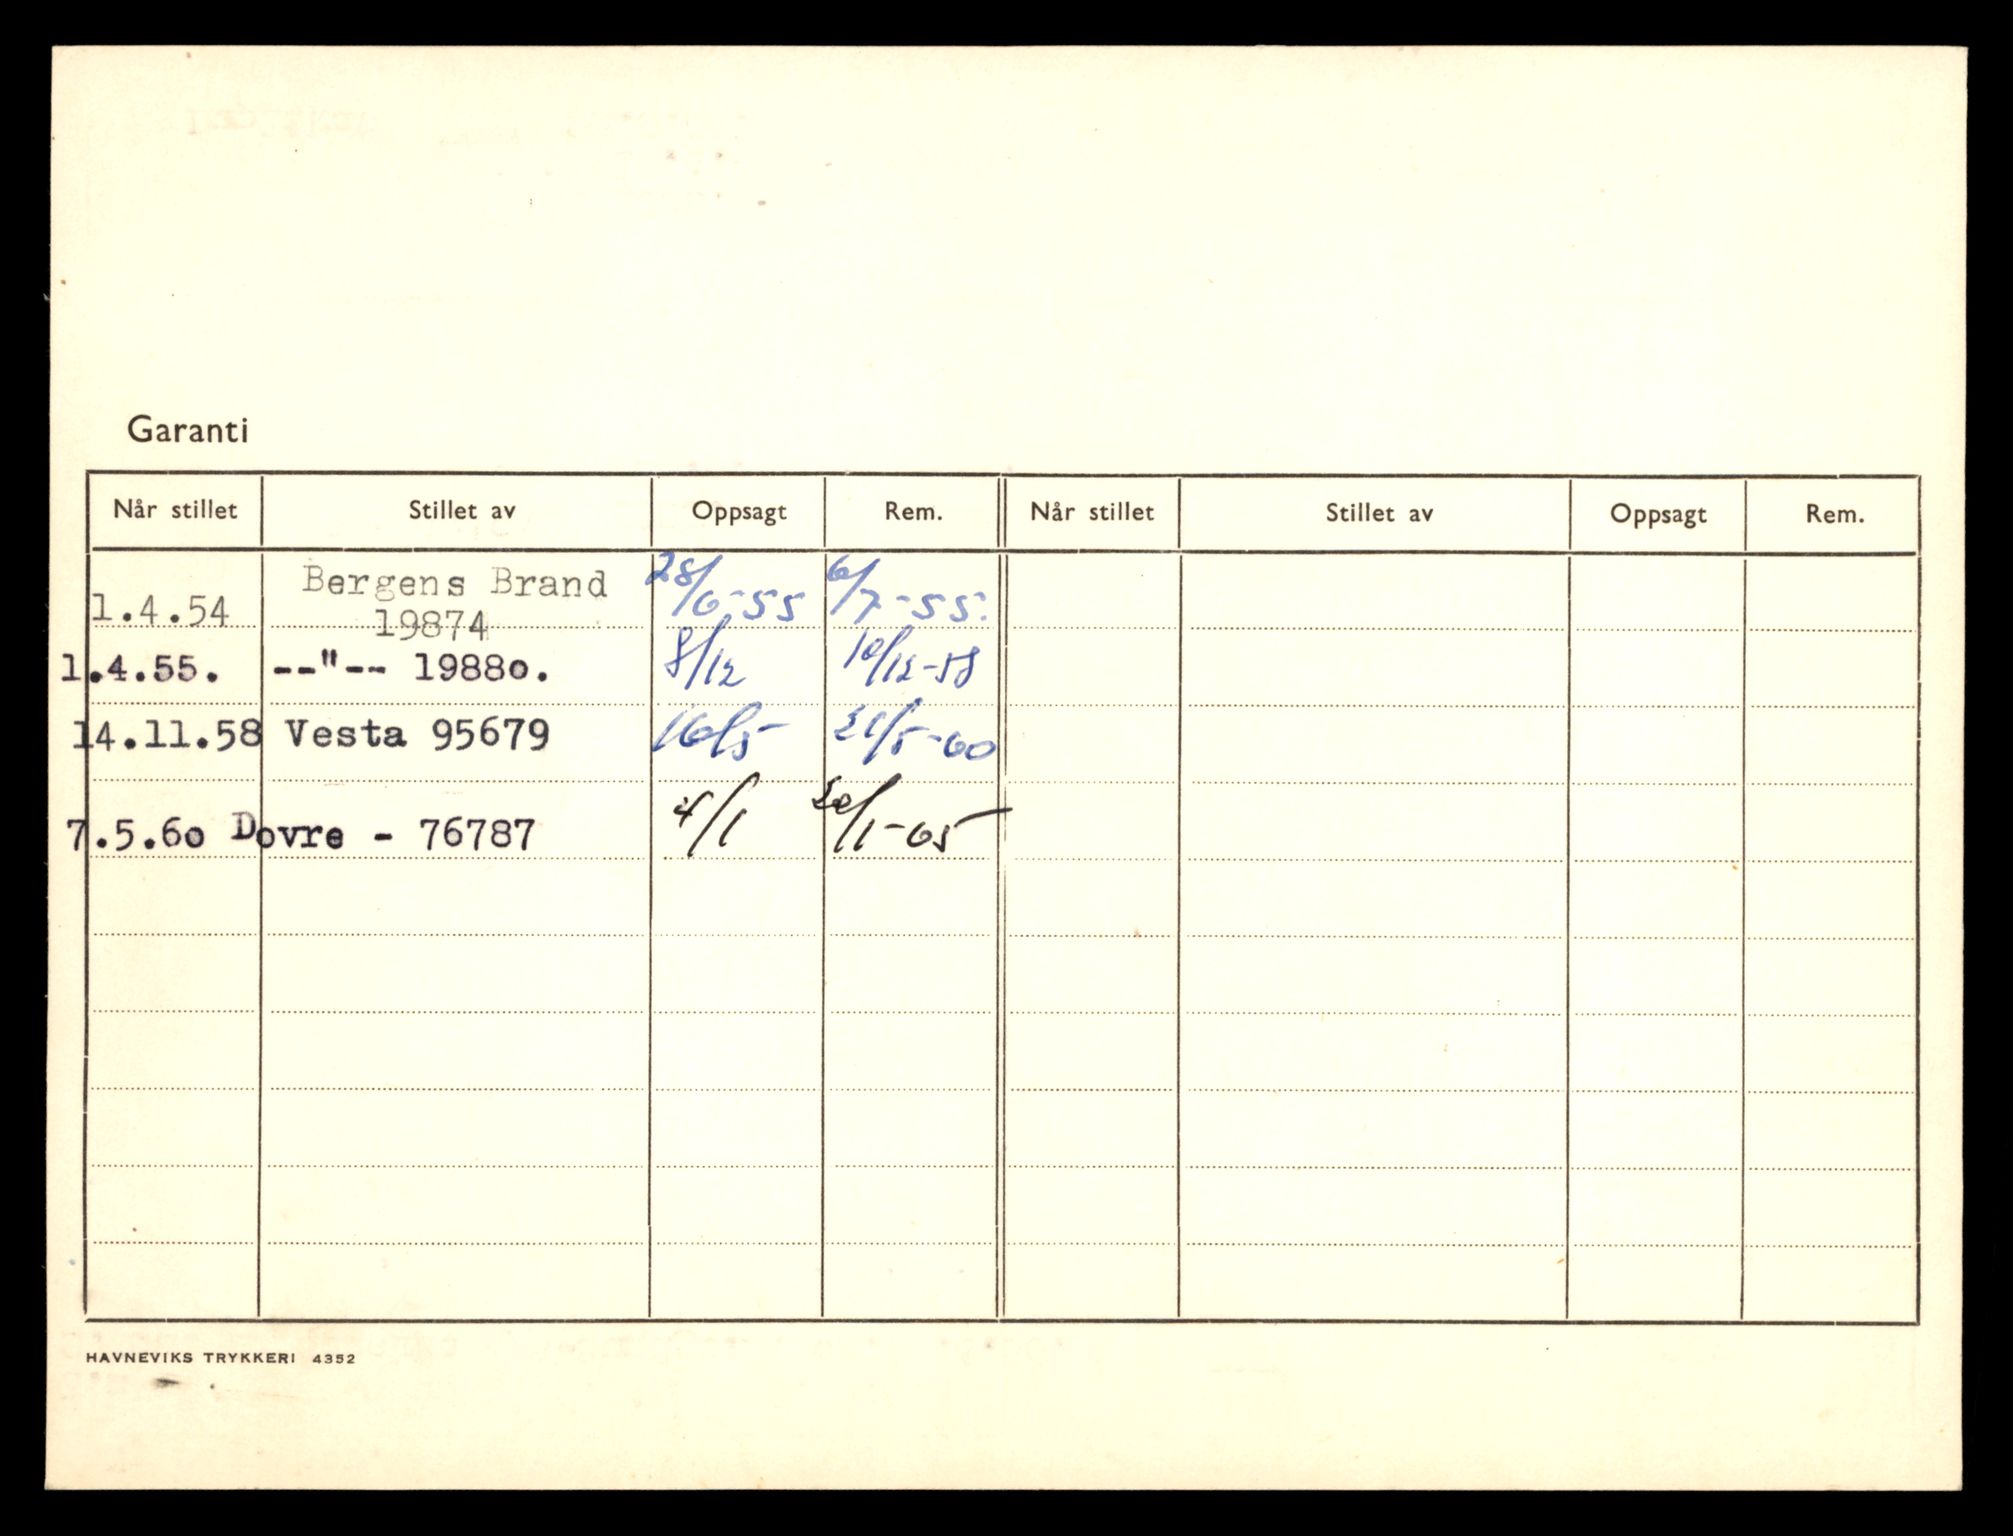 Garanti
Når stillet Stillet av Oppsagt Rem. Når stillet Stillet av Oppsagt Rem.
Bergens Brand 28/6-55 6/7-55.
1.4.54 19874
1.4.55. --"-- 1988o. 8/12 10/12-58
14.11.58 Vesta 95679 16/5 21/5-60
7.5.6o Dovre - 76787 4/1 20/1-65
HAVNEVIKS TRYKKERI 4352